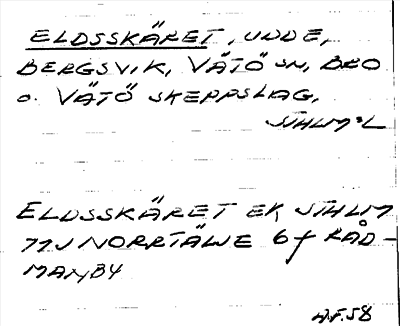 ELDSSKÄRET, UNDE,
BERGSVIK, VÄTÖ SN, BRO
O. VÄTÖ SKEPPSLAG,
STHLM'L
ELDSSKÄRET EK STHLM
77J NORRTÄLJE 6 f RÅD-
MANBY
A.F. 58